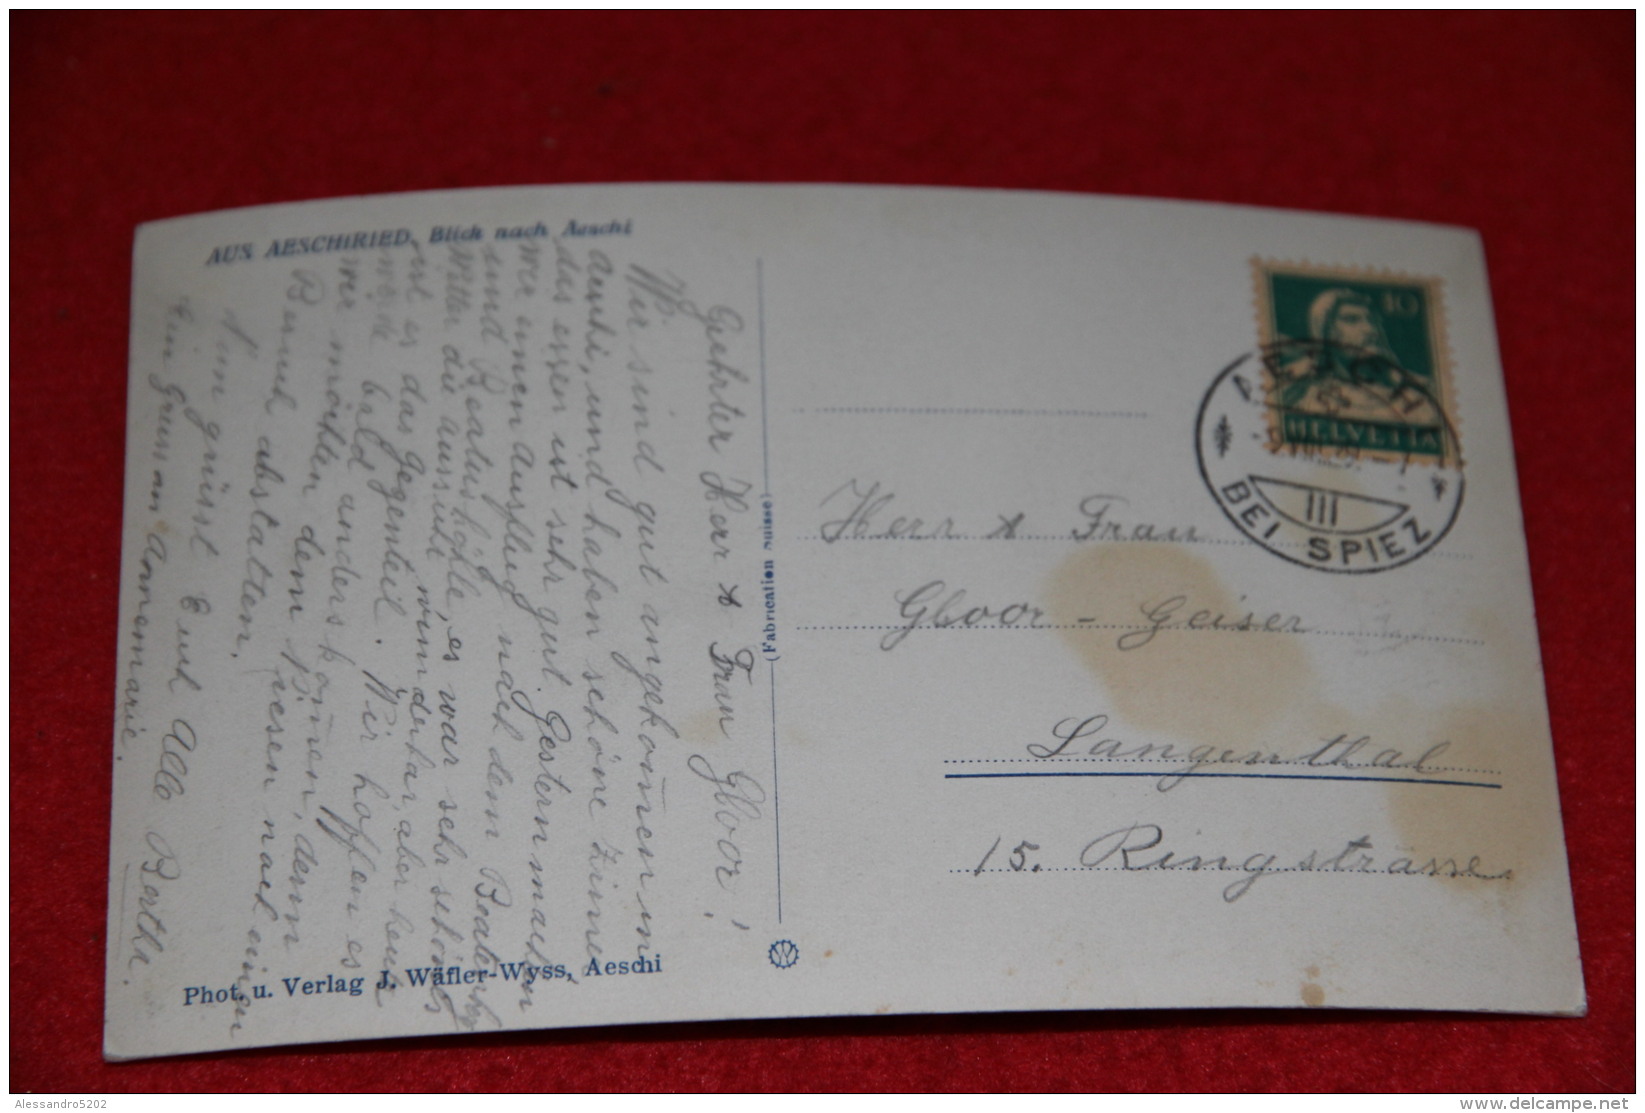 AUS AESCHIRIED, Blick nach Aeschi
Geehrter Herr & Frau Gloor!
Wir sind gut angekom̄en in
Aeschi, und haben schöne Zimmer
das essen ist sehr gut. Gestern machten
wir einen Ausflug nach dem Beatenberg
und Beatushöhle, es war sehr schönes
Witter die aussicht, wunderbar, aber heute
ist es das Gegenteil. Wir hoffen es
werde bald anders kom̄en, denn
wir möchten dem Niesen nach einen
Besuch abstatten.
Nun grüsst Euch Alle Bertha.
Ein Gruss an Annemarie.
Phot. u. Verlag J. Wäfler-Wyss, Aeschi
(Fabrication Suisse)
10
HELVETIA
AESCHI
BEI SPIEZ
III
Herr & Frau
Gloor - Geiser
Langenthal
15. Ringstrasse
Alessandro5202
www.delcampe.net